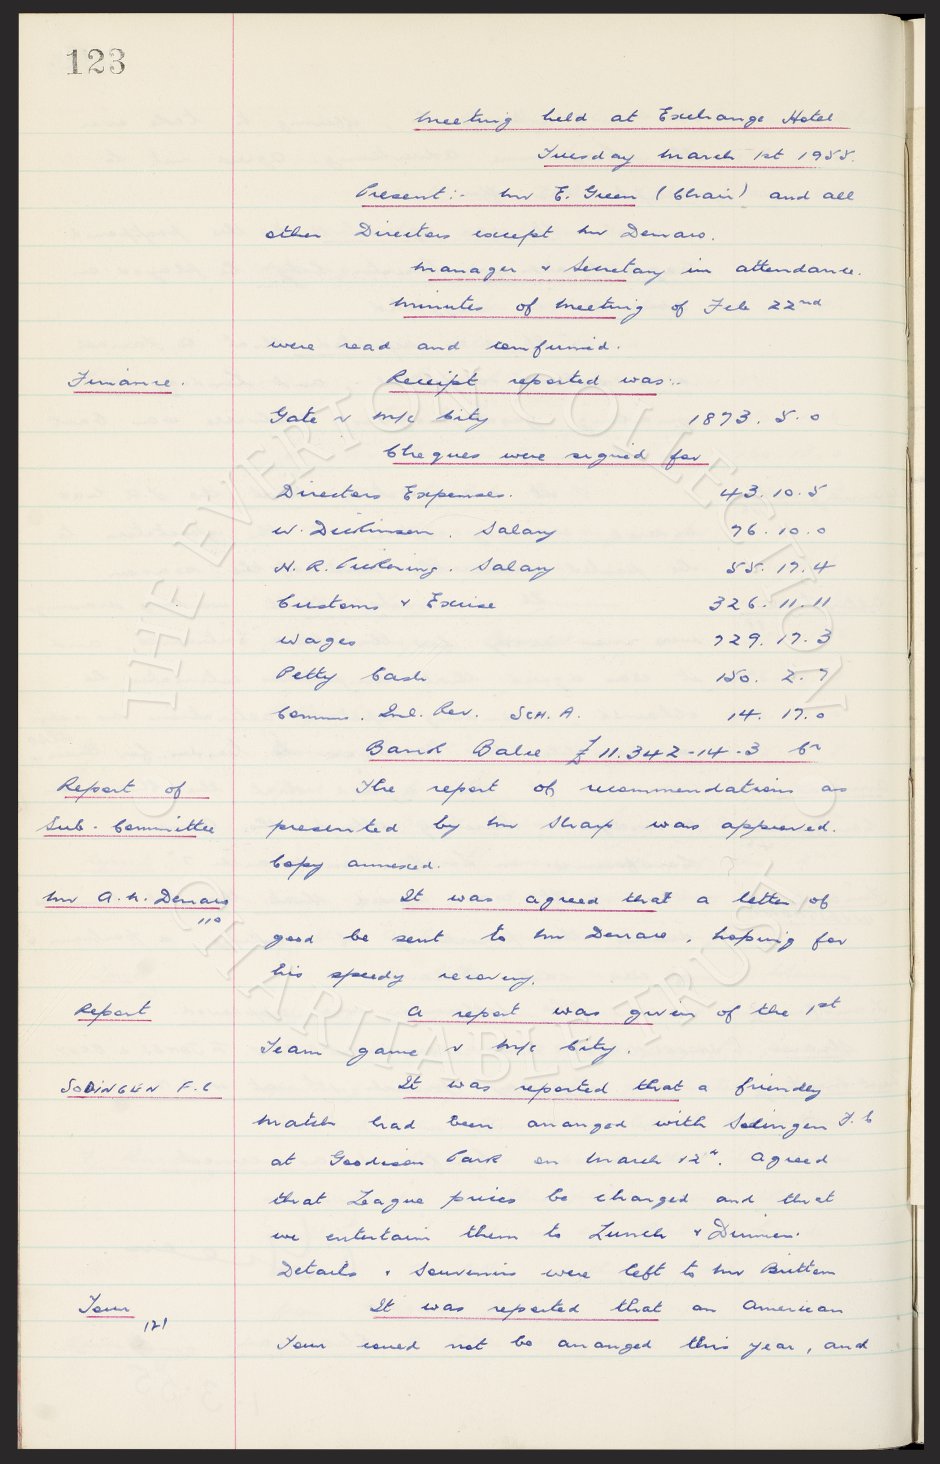 123
Meeting held at Exchange Hotel
Tuesday March 1st 1955.
Present:- Mr E. Green (Chair) and all
other Directors except Mr Denaro.
Manager & Secretary in attendance.
Minutes of Meeting of Feb 22nd
were read and confirmed.
Finance. Receipt reported was:-
Gate v M/c City 1873. 5. 0
Cheques were signed for
Directors Expenses. 43. 10. 5
W. Dickinson. Salary 76. 10. 0
H. R. Pickering. Salary 55. 17. 4
Customs & Excise 326. 11. 11
Wages 729. 17. 3
Petty Cash 150. 2. 7
Comms. Inl. Rev. SCH. A. 14. 17. 0
Bank Balce £11.342-14-3 Cr
Report of The report of recommendations as
Sub-Committee presented by Mr Sharp was approved.
Copy annexed.
Mr A. H. Denaro It was agreed that a letter of
110
good be sent to Mr Denaro, hoping for
his speedy recovery.
Report A report was given of the 1st
Team game v M/c City.
SODINGEN F.C It was reported that a friendly
match had been arranged with Sodingen F.C
at Goodison Park on March 12th. Agreed
that League prices be charged and that
we entertain them to Lunch & Dinner.
Details & Souvenirs were left to Mr Britton
Tour It was reported that an American
121
Tour could not be arranged this year, and
THE EVERTON COLLECTION
CHARITABLE TRUST